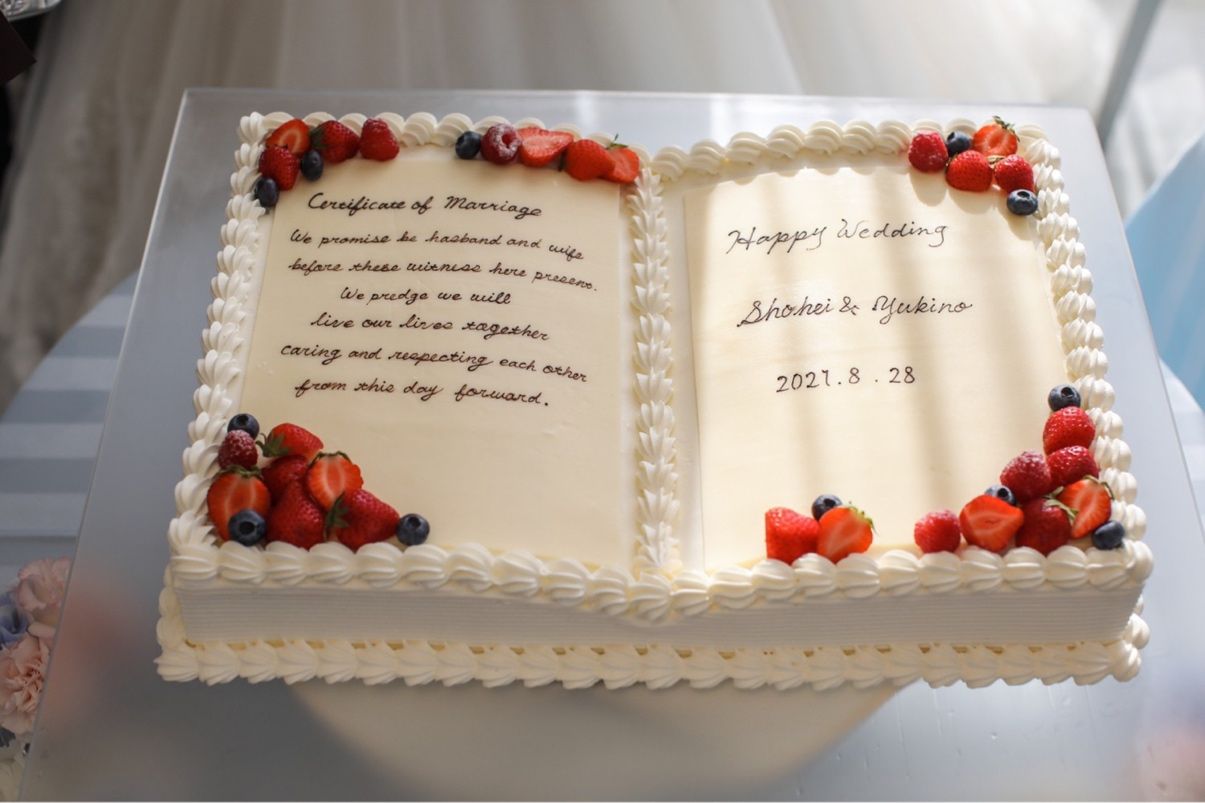 Certificate of Marriage
We promise be hasband and wife
before these witness here presenc.
We predge we will
live our lives together
caring and respecting each other
from this day forward.
Happy Wedding
Shohei & Yukino
2021.8.28